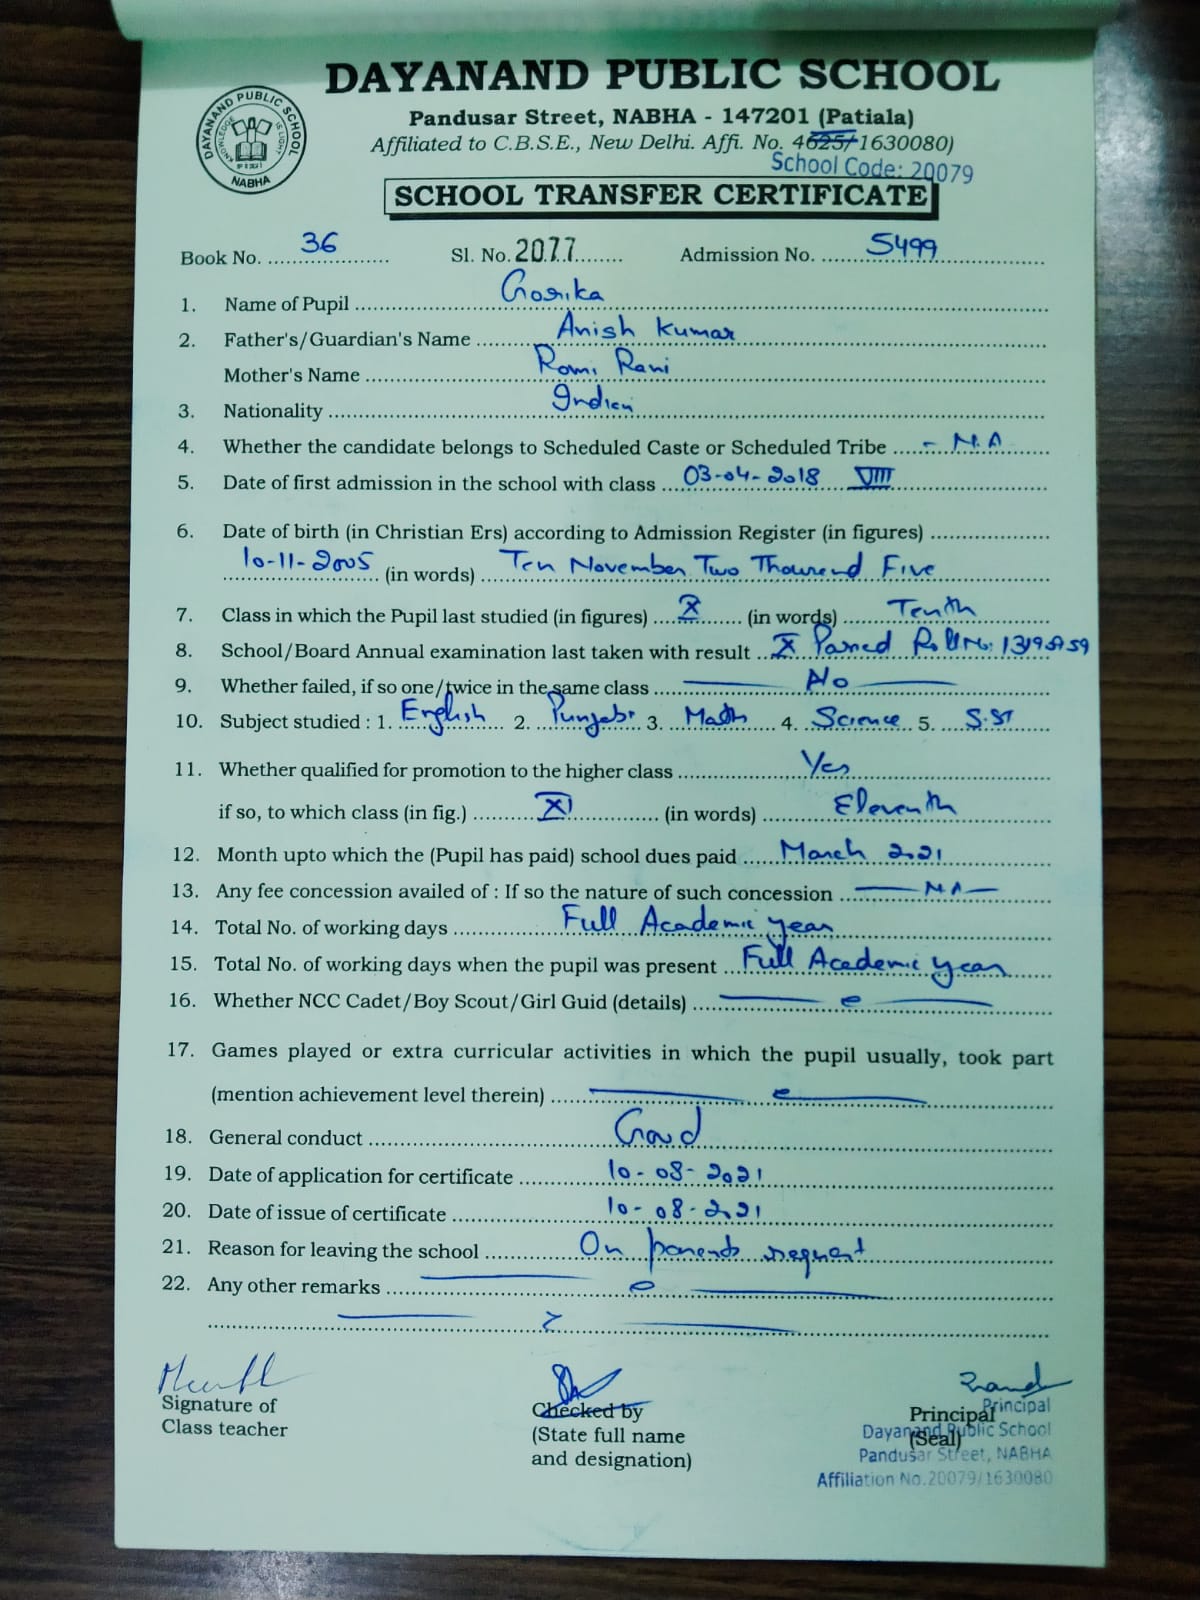 DAYANAND PUBLIC SCHOOL
DAYANAND PUBLIC SCHOOL
KNOWLEDGE IS LIGHT
NABHA
Pandusar Street, NABHA - 147201 (Patiala)
Affiliated to C.B.S.E., New Delhi. Affi. No. 4625/1630080)
School Code: 20079
SCHOOL TRANSFER CERTIFICATE
Book No. 36 Sl. No. 2077 Admission No. 5499
1. Name of Pupil Gorika
2. Father's/Guardian's Name Anish Kumar
Mother's Name Romi Rani
3. Nationality Indian
4. Whether the candidate belongs to Scheduled Caste or Scheduled Tribe - N.A
5. Date of first admission in the school with class 03-04-2018 VIII
6. Date of birth (in Christian Ers) according to Admission Register (in figures)
10-11-2005 (in words) Ten November Two Thousend Five
7. Class in which the Pupil last studied (in figures) X (in words) Tenth
8. School/Board Annual examination last taken with result X Passed Roll No.
9. Whether failed, if so one/twice in the same class No
10. Subject studied : 1. English 2. Punjabi 3. Math 4. Science 5. S.ST
11. Whether qualified for promotion to the higher class Yes
if so, to which class (in fig.) XI (in words) Eleventh
12. Month upto which the (Pupil has paid) school dues paid March 2021
13. Any fee concession availed of : If so the nature of such concession NA
14. Total No. of working days Full Academic year
15. Total No. of working days when the pupil was present Full Academic year
16. Whether NCC Cadet/Boy Scout/Girl Guid (details)
17. Games played or extra curricular activities in which the pupil usually, took part
(mention achievement level therein)
18. General conduct Good
19. Date of application for certificate 10-08-2021
20. Date of issue of certificate 10-08-2021
21. Reason for leaving the school On parents request
22. Any other remarks
Signature of
Class teacher
Checked by
(State full name
and designation)
Principal
(Seal)
Principal
Dayanand Public School
Pandusar Street, NABHA
Affiliation No.20079/1630080